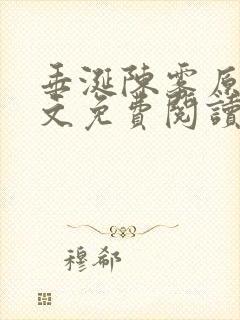 垂涎陳霎原
文免費閱讀
穆郗